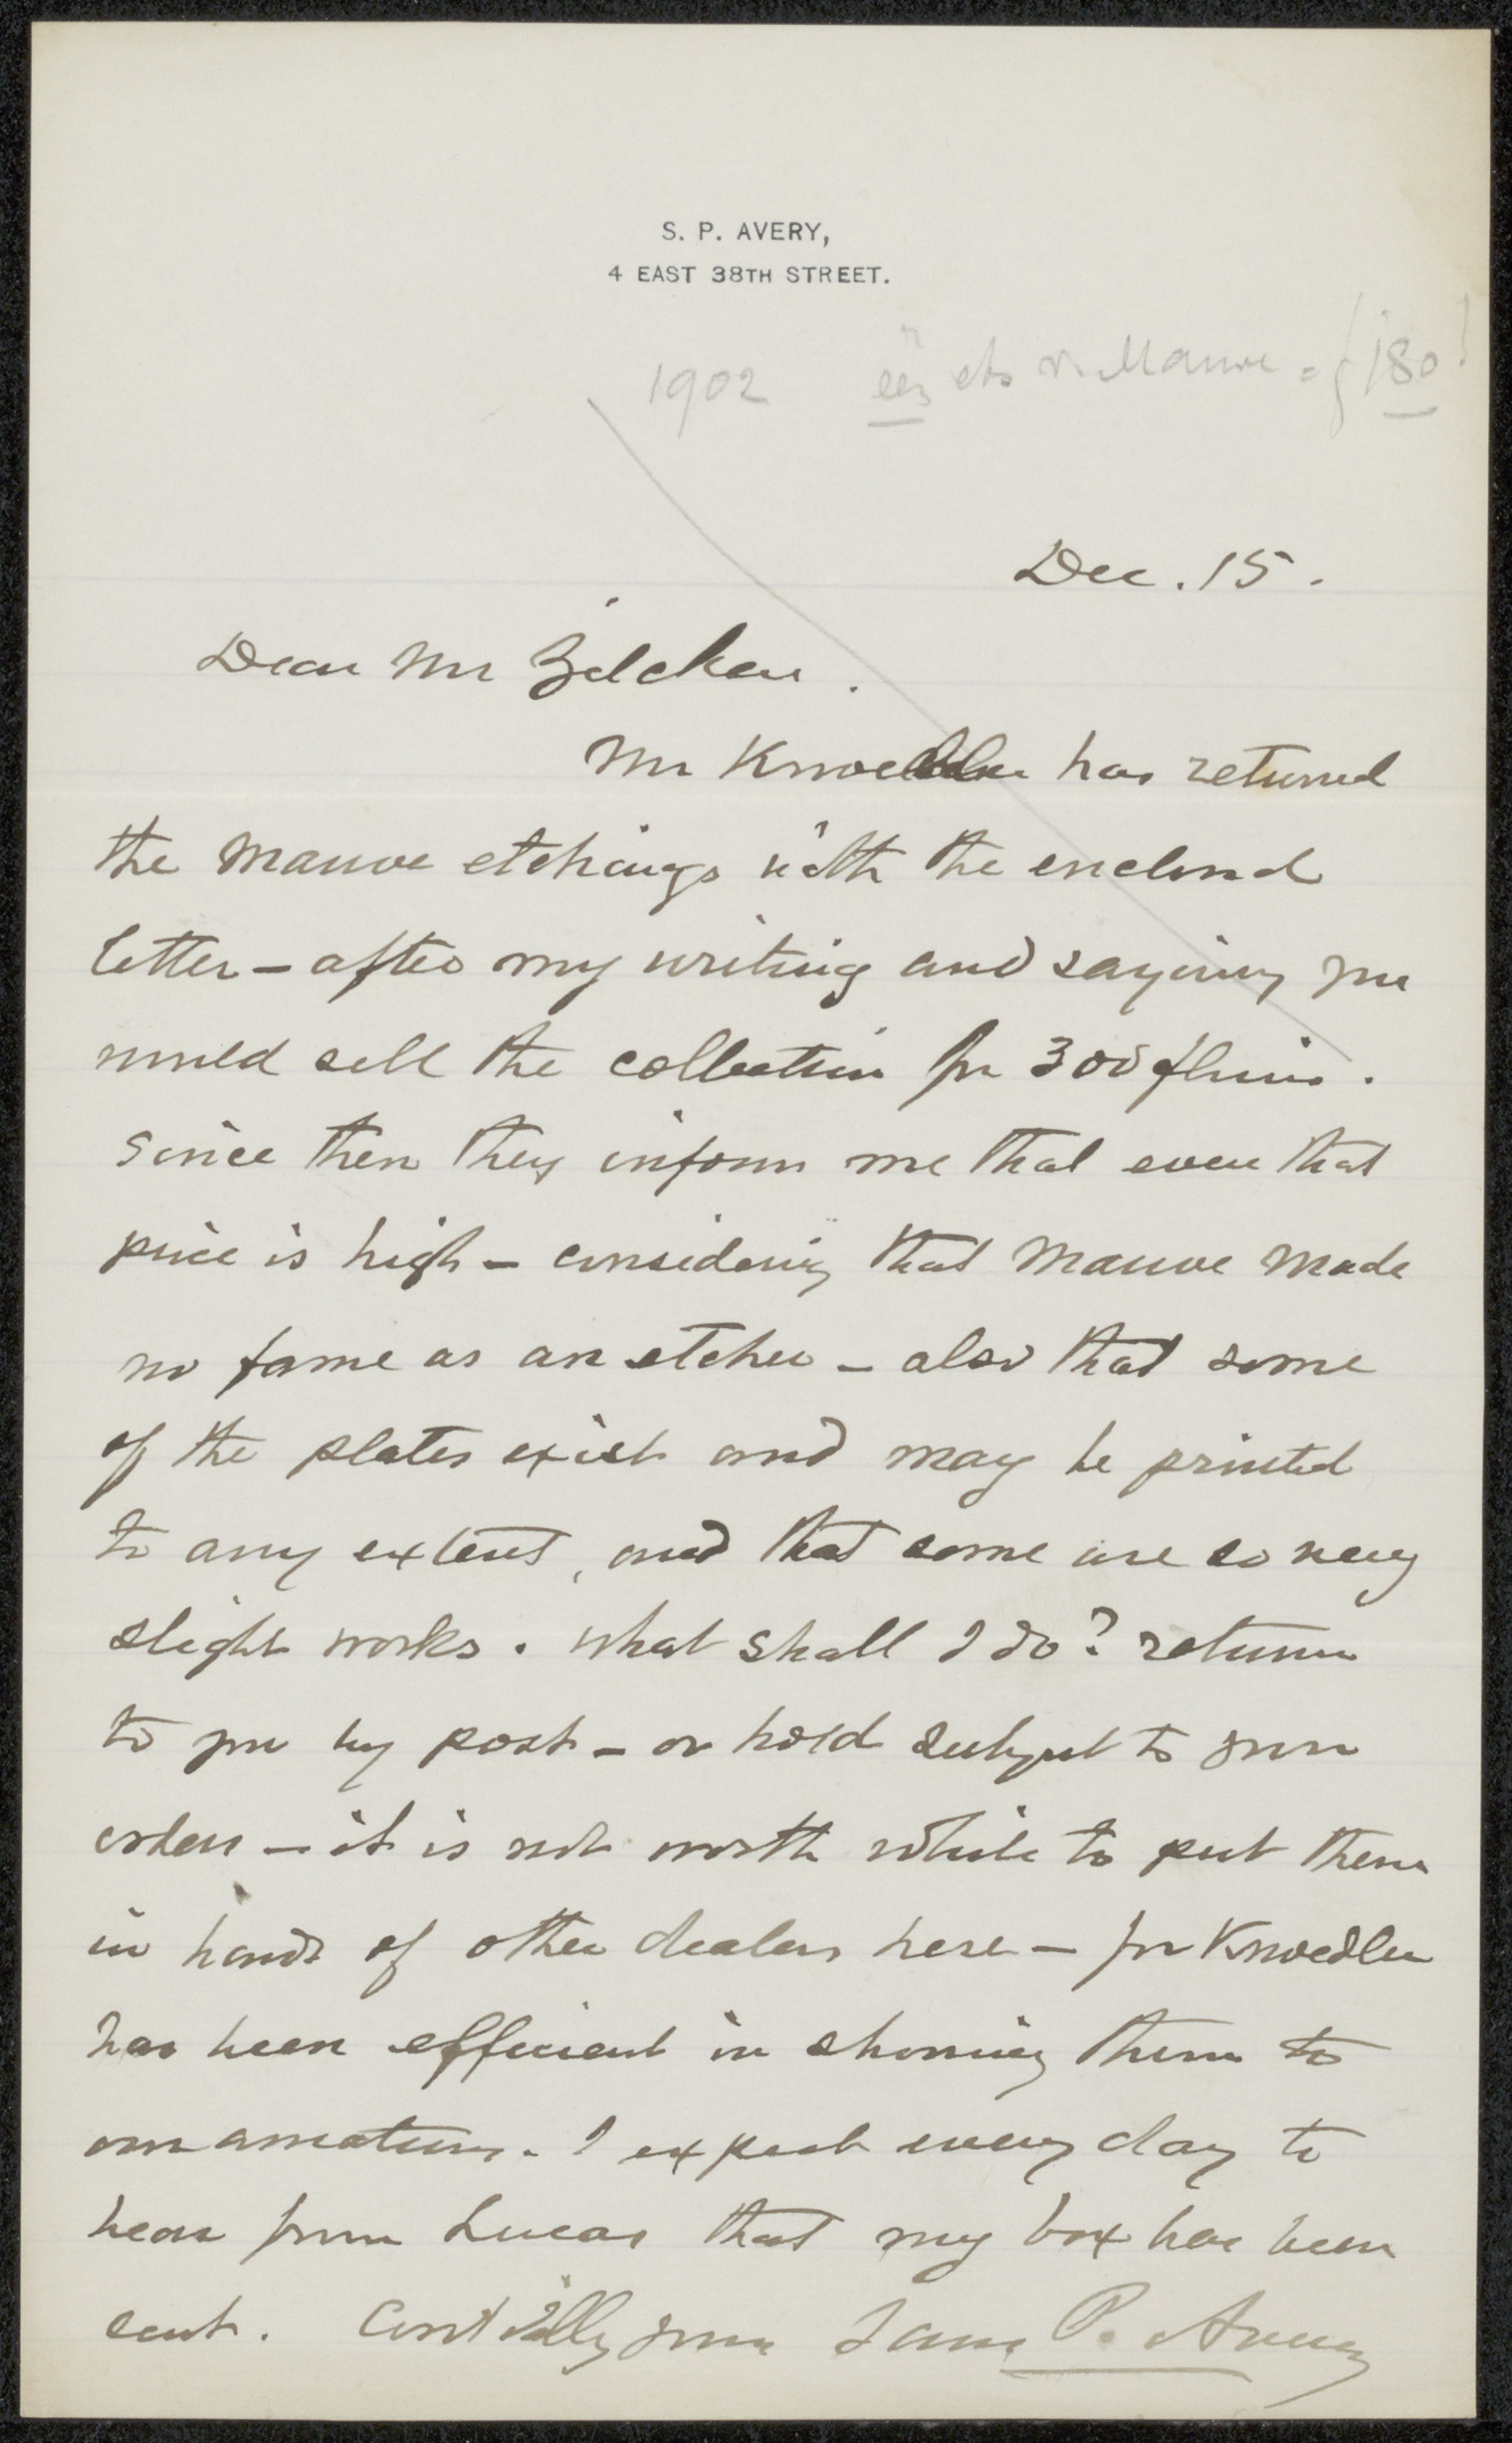 S. P. AVERY,
4 EAST 38TH STREET.
1902 één ets v. Mauve = f 180!
Dec. 15.
Dear Mr Zilcken.
Mr Knoedler has returned
the Mauve etchings with the enclosed
letter – after my writing and saying you
would sell the collection for 300 florins.
Since then they inform me that even that
price is high – considering that Mauve made
no fame as an etcher – also that some
of the plates exist and may be printed
to any extent, and that some are so very
slight works. What shall I do? return
to you by post – or hold subject to your
orders – it is not worth while to put them
in hands of other dealers here – for Knoedler
has been efficient in showing them to
our amateurs. I expect every day to
hear from Lucas that my box has been
sent. Cordially yours Sam P. Avery